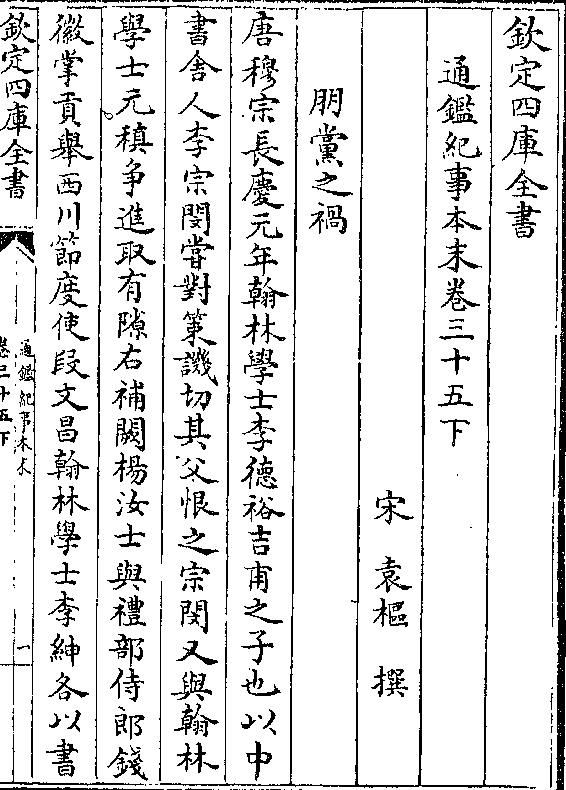 欽定四庫全書
通鑑紀事本末卷三十五下
宋 袁樞 撰
朋黨之禍
唐穆宗長慶元年翰林學士李德裕吉甫之子也以中
書舍人李宗閔嘗對策譏切其父恨之宗閔又與翰林
學士元稹爭進取有隙右補闕楊汝士與禮部侍郎錢
徽掌貢舉西川節度使段文昌翰林學士李紳各以書
欽定四庫全書
通鑑紀事本末
卷三十五下
一